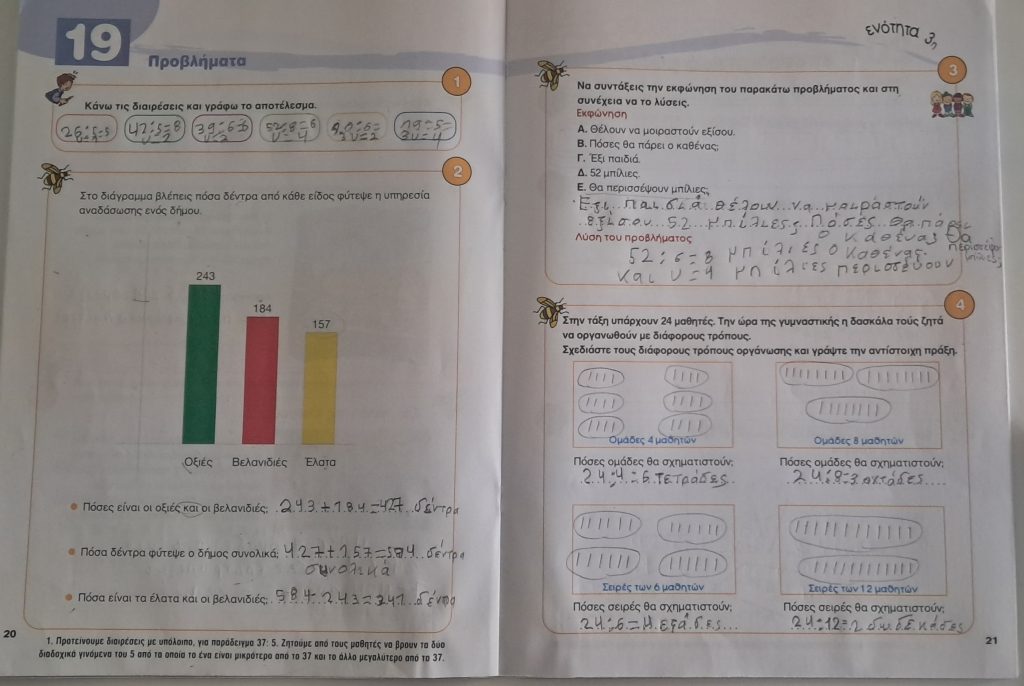 19
Προβλήματα
1
Κάνω τις διαιρέσεις και γράφω το αποτέλεσμα.
42:5=8
υ=2
39:6=6
52:8=6
υ=4
39:5=
υ=4
2
Στο διάγραμμα βλέπεις πόσα δέντρα από κάθε είδος φύτεψε η υπηρεσία
αναδάσωσης ενός δήμου.
243
184
157
Οξιές Βελανιδιές Έλατα
Πόσες είναι οι οξιές και οι βελανιδιές; 243+184=427 δέντρα
Πόσα δέντρα φύτεψε ο δήμος συνολικά; 427+157=584 δέντρα
συνολικά
Πόσα είναι τα έλατα και οι βελανιδιές; 584-243=341 δέντρα
20
1. Προτείνουμε διαιρέσεις με υπόλοιπο, για παράδειγμα 37: 5. Ζητούμε από τους μαθητές να βρουν τα δύο
διαδοχικά γινόμενα του 5 από τα οποία το ένα είναι μικρότερο από το 37 και το άλλο μεγαλύτερο από το 37.
ενότητα 3η
3
Να συντάξεις την εκφώνηση του παρακάτω προβλήματος και στη
συνέχεια να το λύσεις.
Εκφώνηση
Α. Θέλουν να μοιραστούν εξίσου.
Β. Πόσες θα πάρει ο καθένας;
Γ. Έξι παιδιά.
Δ. 52 μπίλιες.
Ε. Θα περισσέψουν μπίλιες;
Έξι παιδιά θέλουν να μοιραστούν
εξίσου 52 μπίλιες Πόσες θα πάρει
ο καθένας θα
περισέψουν
μπίλιες
Λύση του προβλήματος
52:6=8 μπίλιες ο καθένας
και υ=4 μπίλιες περισεύουν
4
Στην τάξη υπάρχουν 24 μαθητές. Την ώρα της γυμναστικής η δασκάλα τούς ζητά
να οργανωθούν με διάφορους τρόπους.
Σχεδιάστε τους διάφορους τρόπους οργάνωσης και γράψτε την αντίστοιχη πράξη.
Ομάδες 4 μαθητών
Ομάδες 8 μαθητών
Πόσες ομάδες θα σχηματιστούν;
24:4=6 τετράδες
Πόσες ομάδες θα σχηματιστούν;
24:8=3 οχτάδες
Σειρές των 6 μαθητών
Σειρές των 12 μαθητών
Πόσες σειρές θα σχηματιστούν;
24:6=4 εξάδες
Πόσες σειρές θα σχηματιστούν;
24:12=2 δωδεκάδες
21